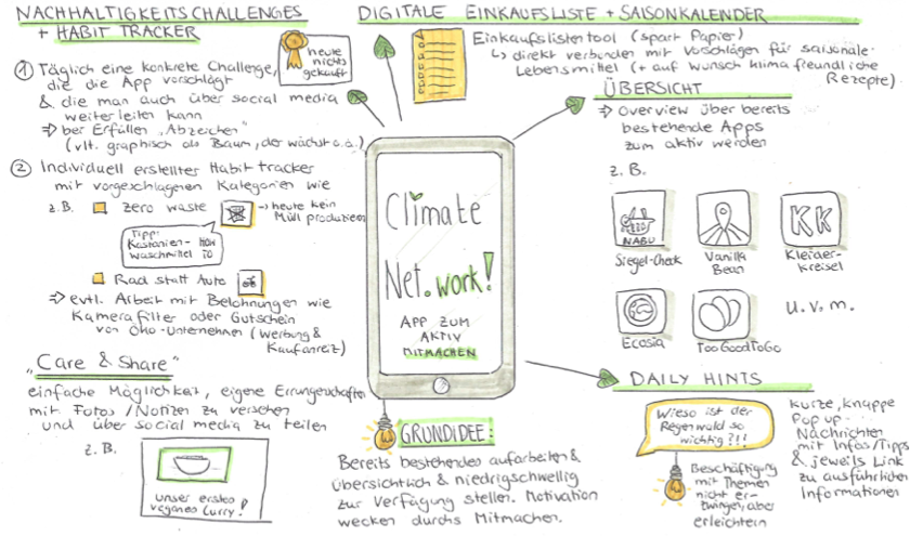 NACHHALTIGKEITSCHALLENGES
+ HABIT TRACKER
heute
nichts
gekauft
① Täglich eine konkrete Challenge,
die die App vorschlägt
& die man auch über social media
weiterleiten kann
⇒ bei Erfüllen „Abzeichen"
(vlt. graphisch als Baum, der wächst o.ä.)
② Individuell erstellter Habit tracker
mit vorgeschlagenen Kategorien wie
z.B. zero waste → heute kein
Müll produzieren
Tipp:
Kastanien- HOW
waschmittel TO
Rad statt Auto
⇒ evtl. Arbeit mit Belohnungen wie
Kamerafilter oder Gutschein
von Öko-Unternehmen (Werbung &
Kaufanreiz)
„Care & Share"
einfache Möglichkeit, eigene Errungenschaften
mit Fotos/Notizen zu versehen
und über social media zu teilen
z.B.
unser erstes
veganes Curry!
DIGITALE EINKAUFSLISTE + SAISONKALENDER
Einkaufslistentool (spart Papier)
↳ direkt verbunden mit Vorschlägen für saisonale
Lebensmittel (+ auf Wunsch klimafreundliche
Rezepte)
Climate
Net.work!
APP ZUM
AKTIV
MITMACHEN
GRUNDIDEE:
Bereits bestehendes aufarbeiten &
übersichtlich & niedrigschwellig
zur Verfügung stellen. Motivation
wecken durchs Mitmachen.
ÜBERSICHT
⇒ Overview über bereits
bestehende Apps
zum aktiv werden
z.B.
NABU
Siegel-Check
Vanilla
Bean
KK
Kleider-
kreisel
Ecosia
TooGoodToGo
u.v.m.
DAILY HINTS
Wieso ist der
Regenwald so
wichtig?!!
Beschäftigung
mit Themen
nicht er-
zwingen, aber
erleichtern
kurze, knappe
Pop up
Nachrichten
mit Infos/Tipps
& jeweils Link
zu ausführlichen
Informationen